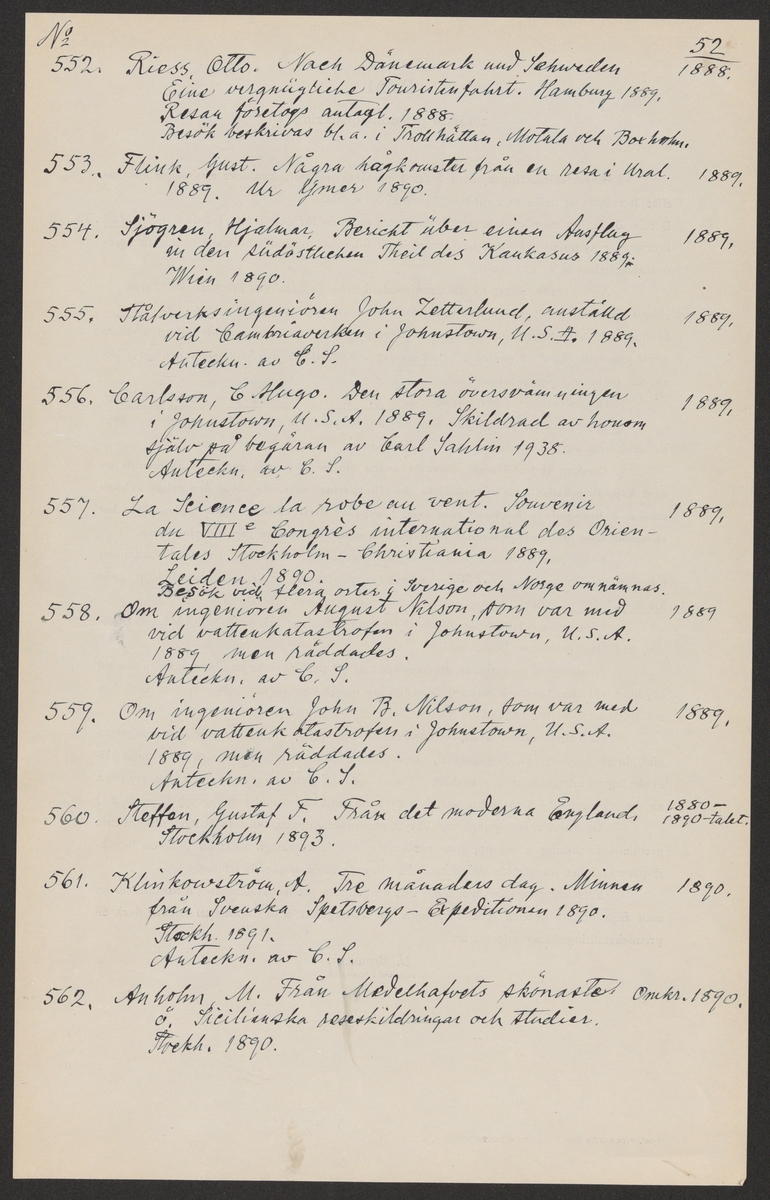 No
52
552. Riess, Otto. Nach Dänemark und Schweden 1888.
Eine vergnügliche Touristenfahrt. Hamburg 1889.
Resan företogs antagl. 1888.
Besök beskrivas bl.a. i Trollhättan, Motala och Boxholm.
553. Flink, Gust. Några hågkomster från en resa i Ural. 1889.
1889. Ur Ymer 1890.
554. Sjögren, Hjalmar. Bericht über einen Ausflug 1889.
in den südöstlichen Theil des Kaukasus 1889.
Wien 1890.
555. Stålverksingeniören John Zetterlund, anställd 1889.
vid Cambriaverken i Johnstown, U.S.A. 1889.
Anteckn. av C. S.
556. Carlsson, C Hugo. Den stora översvämningen 1889.
i Johnstown, U.S.A. 1889. Skildrad av honom
själv på begäran av Carl Sahlin 1938.
Anteckn. av C. S.
557. La Science la robe au vent. Souvenir 1889.
du VIIIe Congrès international des Orien-
tales Stockholm – Christiania 1889,
Leiden 1890.
Besök vid flera orter i Sverige och Norge omnämnas.
558. Om ingeniören August Nilson, som var med 1889
vid vattenkatastrofen i Johnstown, U.S.A.
1889 men räddades.
Anteckn. av C. S.
559. Om ingeniören John B. Nilson, som var med 1889.
vid vattenkatastrofen i Johnstown, U.S.A.
1889, men räddades.
Anteckn. av C. S.
560. Steffen, Gustaf F. Från det moderna England. 1880–
1890-talet.
Stockholm 1893.
561. Klinkowström, A. Tre månaders dag. Minnen 1890.
från Svenska Spetsbergs-Expeditionen 1890.
Stockh. 1891.
Anteckn. av C. S.
562. Anholm, M. Från Medelhafvets skönaste Omkr. 1890.
ö. Sicilianska reseskildringar och studier.
Stockh. 1890.